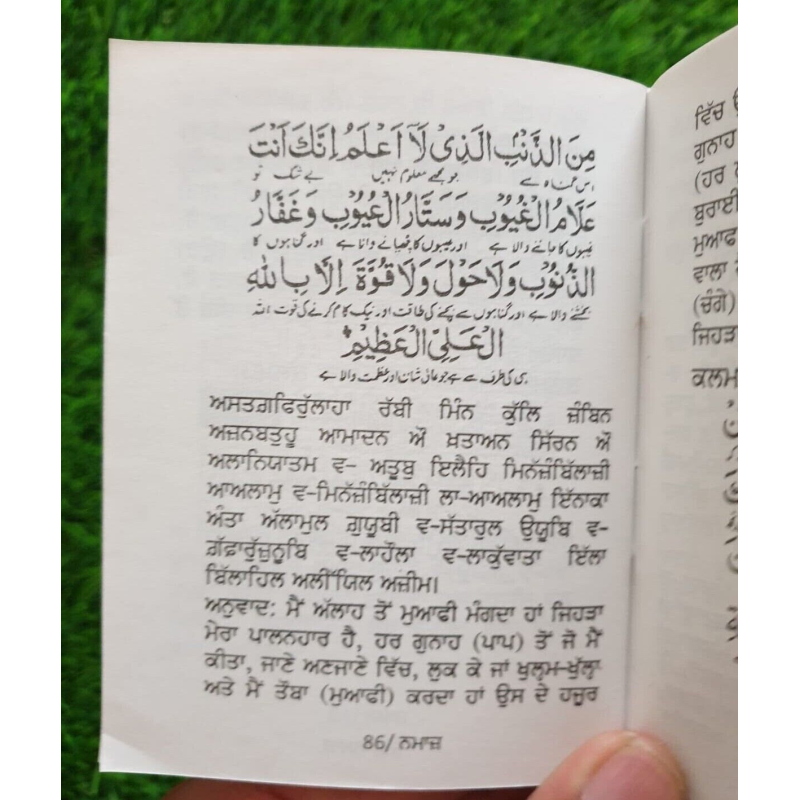 مِنَ الذَّنْبِ الَّذِیْ لَآ اَعْلَمُ اِنَّكَ اَنْتَ
اس گناہ سے جو مجھے معلوم نہیں بے شک تو
عَلَّامُ الْغُیُوْبِ وَسَتَّارُ الْعُیُوْبِ وَغَفَّارُ
غیبوں کا جاننے والا ہے اور عیبوں کا چھپانے والا ہے اور گناہوں کا
الذُّنُوْبِ وَلَاحَوْلَ وَلَاقُوَّةَ اِلَّا بِاللّٰهِ
بخشنے والا ہے اور گناہوں سے بچنے کی طاقت اور نیک کام کرنے کی قوت اللہ
الْعَلِیِّ الْعَظِیْمِ
ہی کی طرف سے ہے جو عالی شان اور عظمت والا ہے
ਅਸਤਗ਼ਫਿਰੁੱਲਾਹਾ ਰੱਬੀ ਮਿੰਨ ਕੁੱਲਿ ਜ਼ੰਬਿਨ
ਅਜ਼ਨਬਤੁਹੂ ਆਮਾਦਨ ਔ ਖ਼ਤਾਅਨ ਸਿੱਰਨ ਔ
ਅਲਾਨਿਯਾਤਮ ਵ- ਅਤੂਬੁ ਇਲੈਹਿ ਮਿਨੱਜ਼ੰਬਿੱਲਾਜ਼ੀ
ਆਅਲਾਮੁ ਵ-ਮਿਨੱਜ਼ੰਬਿੱਲਾਜ਼ੀ ਲਾ-ਆਅਲਾਮੁ ਇੱਨਾਕਾ
ਅੰਤਾ ਅੱਲਾਮੁਲ ਗ਼ੁਯੂਬੀ ਵ-ਸੱਤਾਰੁਲ ਉਯੂਬਿ ਵ-
ਗ਼ੱਫ਼ਾਰੁੱਜ਼ੁਨੂਬਿ ਵ-ਲਾਹੌਲਾ ਵ-ਲਾਕੁੱਵਾਤਾ ਇੱਲਾ
ਬਿੱਲਾਹਿਲ ਅਲੀੱਯਿਲ ਅਜ਼ੀਮ।
ਅਨੁਵਾਦ: ਮੈਂ ਅੱਲਾਹ ਤੋਂ ਮੁਆਫੀ ਮੰਗਦਾ ਹਾਂ ਜਿਹੜਾ
ਮੇਰਾ ਪਾਲਨਹਾਰ ਹੈ, ਹਰ ਗੁਨਾਹ (ਪਾਪ) ਤੋਂ ਜੋ ਮੈਂ
ਕੀਤਾ, ਜਾਣੇ ਅਣਜਾਣੇ ਵਿੱਚ, ਲੁਕ ਕੇ ਜਾਂ ਖੁਲ੍ਹਮ-ਖੁੱਲ੍ਹਾ
ਅਤੇ ਮੈਂ ਤੌਬਾ (ਮੁਆਫੀ) ਕਰਦਾ ਹਾਂ ਉਸ ਦੇ ਹਜ਼ੂਰ
86/ ਨਮਾਜ਼
ਵਿੱਚ
ਗੁਨਾਹ
(ਹਰ
ਬੁਰਾਈ
ਮੁਆਫ
ਵਾਲਾ
(ਚੰਗੇ)
ਜਿਹੜਾ
ਕਲਮ